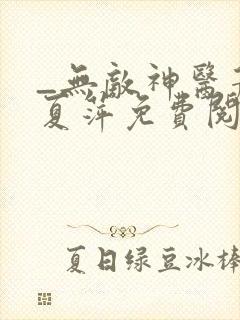 _無敵神醫
夏萍免費閱
夏日绿豆冰棒